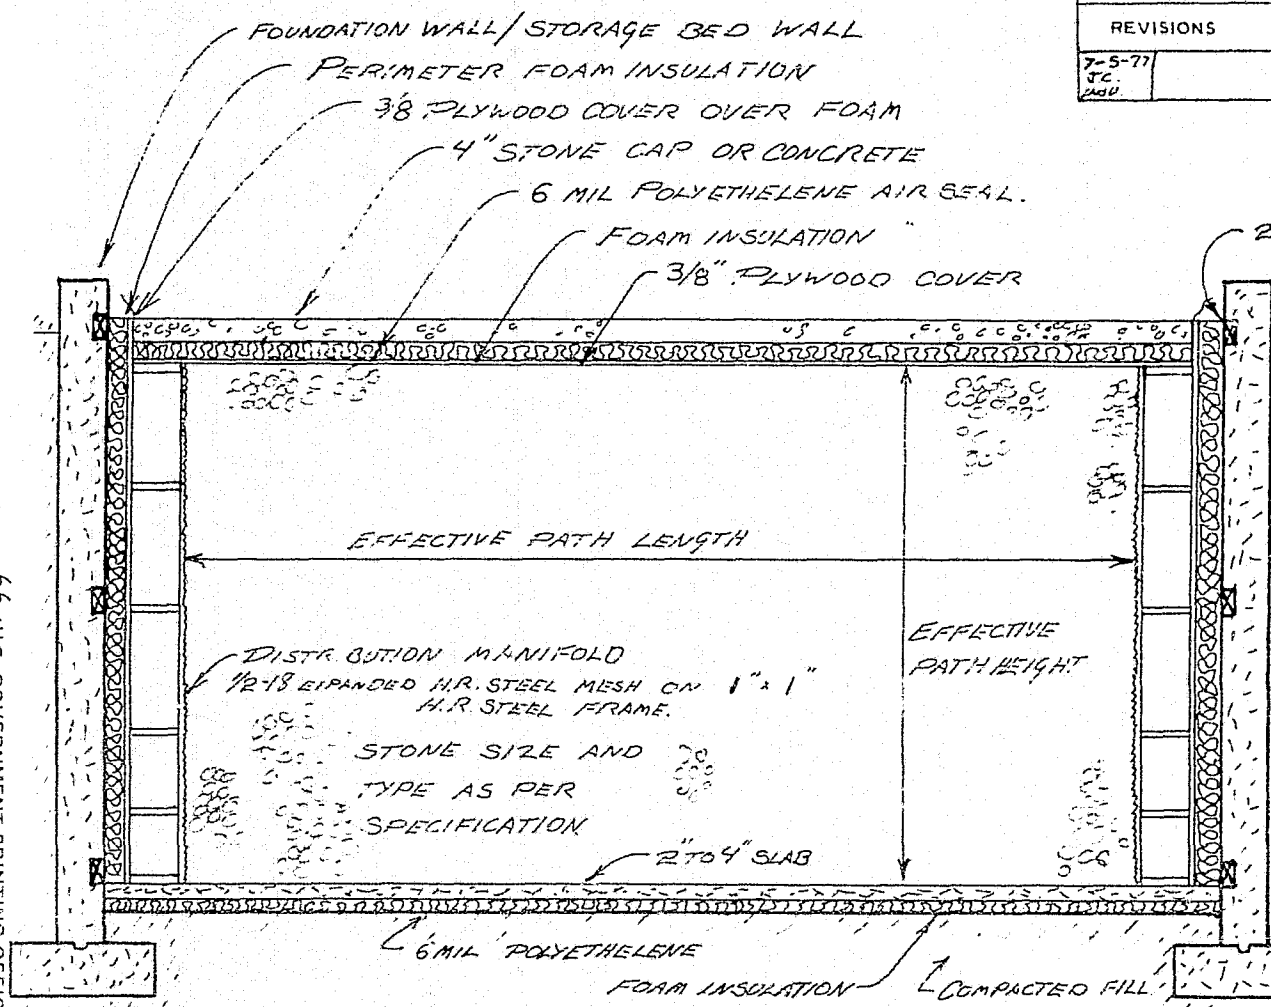 REVISIONS
7-5-77
J.C.
FOUNDATION WALL/STORAGE BED WALL
PERIMETER FOAM INSULATION
3/8 PLYWOOD COVER OVER FOAM
4" STONE CAP OR CONCRETE
6 MIL POLYETHELENE AIR SEAL.
FOAM INSULATION
3/8" PLYWOOD COVER
2
EFFECTIVE PATH LENGTH
EFFECTIVE
PATH HEIGHT
DISTRIBUTION MANIFOLD
1/2-18 EXPANDED H.R. STEEL MESH ON 1" x 1"
H.R STEEL FRAME.
STONE SIZE AND
TYPE AS PER
SPECIFICATION
2" TO 4" SLAB
6 MIL POLYETHELENE
FOAM INSULATION
COMPACTED FILL